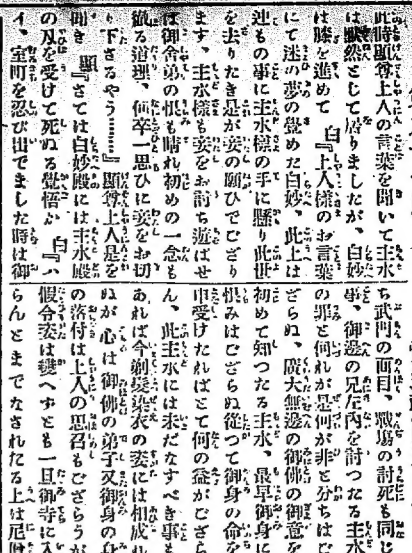 此時顯尊上人の言葉を聞いて主水
は默然として居りましたが、白妙
は膝を進めて 白『上人様のお言葉
にて迷の夢の覺めた白妙、此上は
迚もの事に主水様の手に懸り此世
を去りたき是が妾の願ひでござり
ます、主水様も妾をお討ち遊ばせ
ば御舎弟の恨も晴れ初めの一念も
徹る道理、何卒一思ひに妾をお切
り下さるやう……』顯尊上人是を
聞き 顯『さては白妙殿には主水殿
の刄を受けて死ぬる覺悟か 白『ハ
イ、室町を忍び出でました時は御
ち武門の面目、戰場の討死も同じ
事、御邊の兄左内を討つたる主水
の罪と何れが是何が非と分ちはご
ざらぬ、廣大無邊の御佛の御意を
初めて知つたる主水、最早御身に
恨みはござらぬ從つて御身の命を
申受けたればとて何の益がござら
ん、此主水には未だなすべき事も
あれば今剃髮染衣の姿には相成れ
ぬが心は御佛の弟子又御身の身
の落付は上人の思召もござらうが
假令姿は變へずとも一旦御寺に入
らんとまでなされたる上は尼